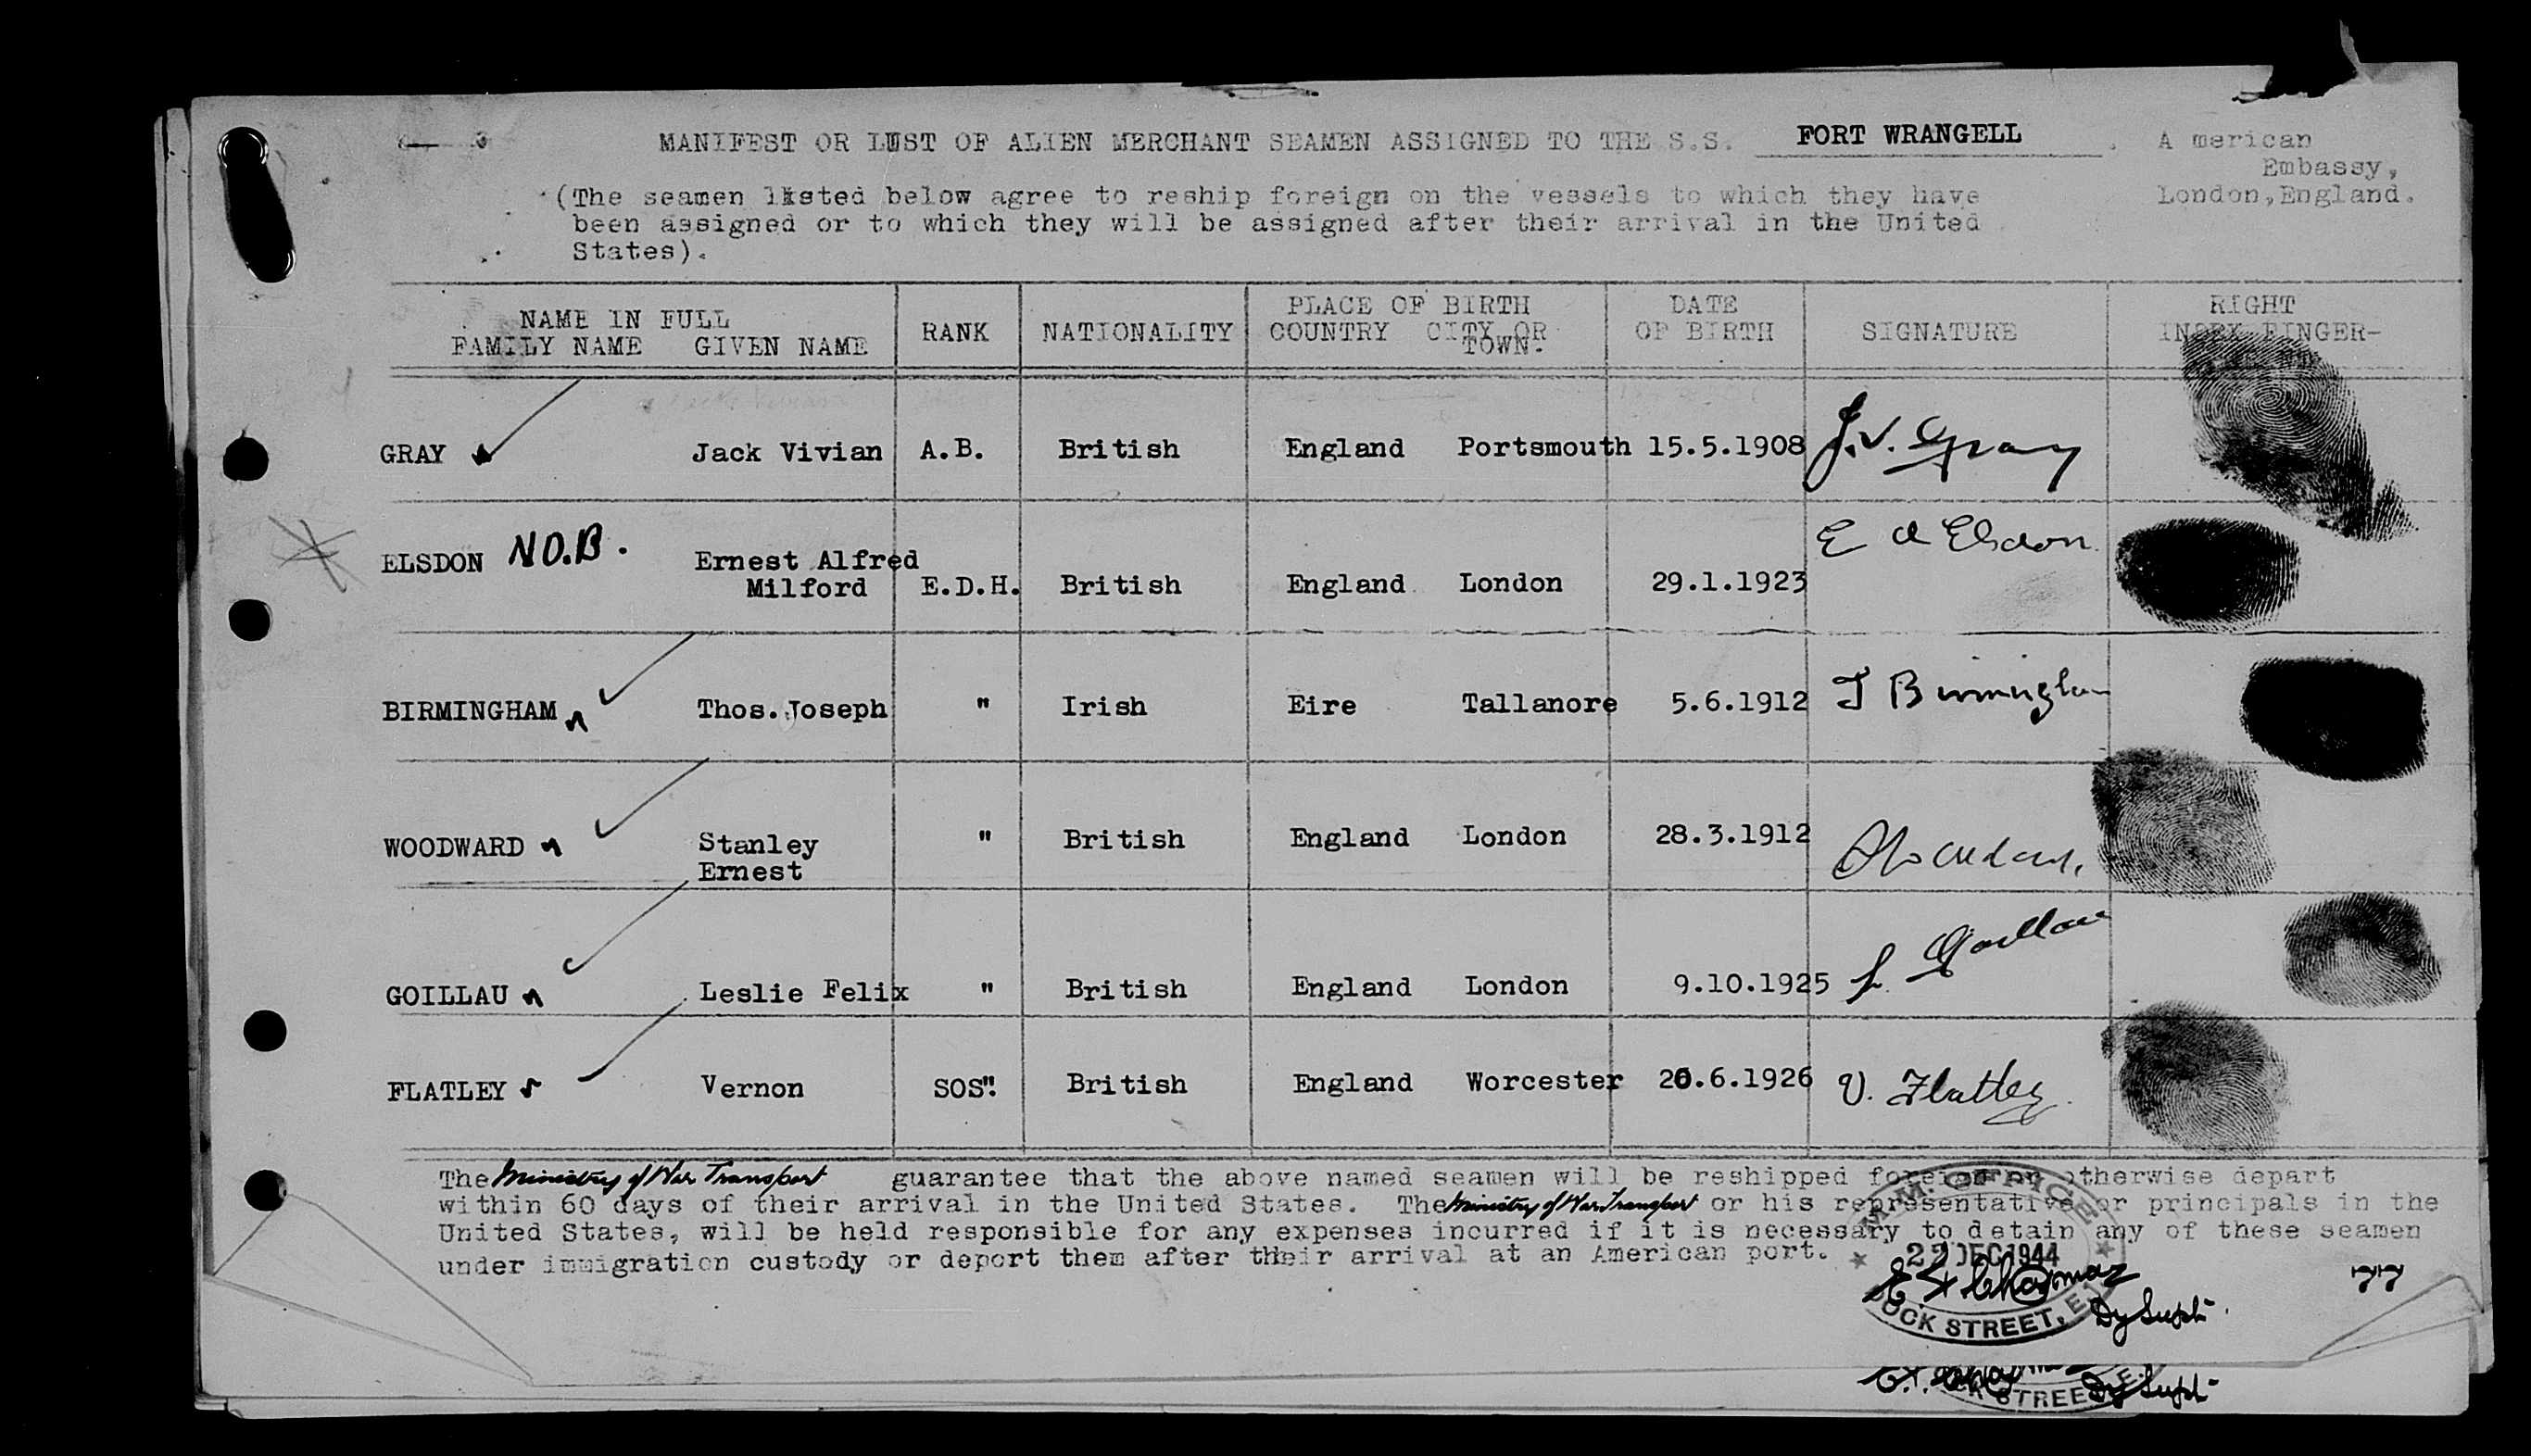 MANIFEST OR LIST OF ALIEN MERCHANT SEAMEN ASSIGNED TO THE S.S. FORT WRANGELL. A merican
Embassy,
London,England.
(The seamen listed below agree to reship foreign on the vessels to which they have
been assigned or to which they will be assigned after their arrival in the United
States).
NAME IN FULL
FAMILY NAME GIVEN NAME
RANK
NATIONALITY
PLACE OF BIRTH
COUNTRY CITY OR
TOWN.
DATE
OF BIRTH
SIGNATURE
RIGHT
INDEX FINGER-
GRAY Jack Vivian A.B. British England Portsmouth 15.5.1908 J.V. Gray
ELSDON N.O.B. Ernest Alfred
Milford E.D.H. British England London 29.1.1923 E A Elsdon
BIRMINGHAM Thos. Joseph " Irish Eire Tallanore 5.6.1912 T Birmingham
WOODWARD Stanley
Ernest " British England London 28.3.1912
GOILLAU Leslie Felix " British England London 9.10.1925 L. Goillau
FLATLEY Vernon SOS". British England Worcester 26.6.1926 V. Flatley
The Ministry of War Transport guarantee that the above named seamen will be reshipped foreign or otherwise depart
within 60 days of their arrival in the United States. The Ministry of War Transport or his representative or principals in the
United States, will be held responsible for any expenses incurred if it is necessary to detain any of these seamen
under immigration custody or deport them after their arrival at an American port.
M.M. OFFICE
DEC 1944
DOCK STREET, E.1.
Dy Supt.
77
STREET
Dy Supt